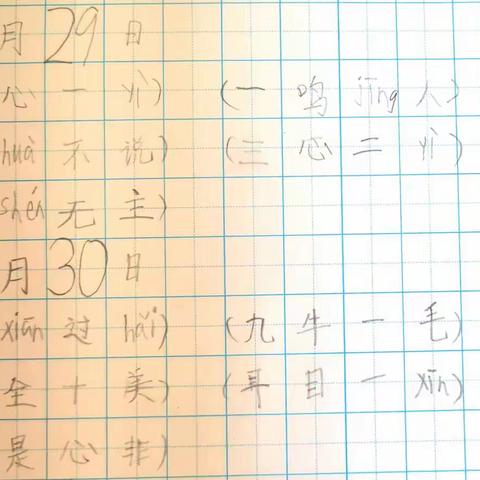 月29日
心一yì) (一鸣jīng人)
huà不说) (三心二yì)
shén无主)
月30日
xiān过hǎi) (九牛一毛)
全十美) (耳目一xīn)
是心非)